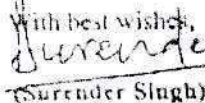 With best wishes,
Surende
(Surender Singh)